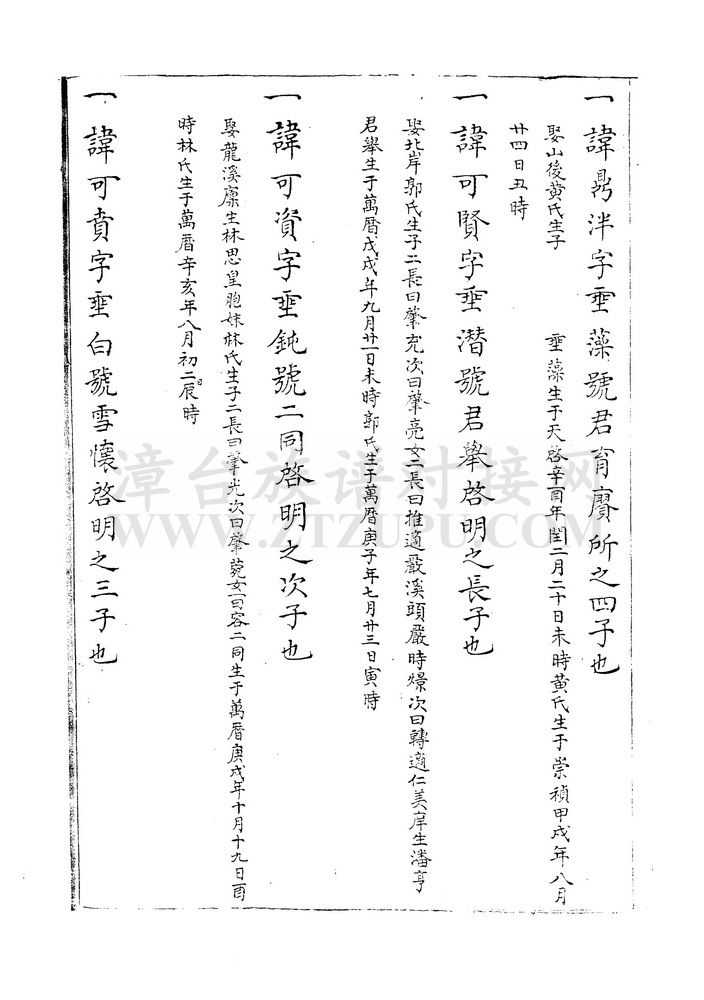 一諱鼎泮字垂藻號君育賡所之四子也
娶山後黃氏生子 垂藻生于天啓辛酉年閏二月二十日未時黃氏生于崇禎甲戌年八月
廿四日丑時
一諱可賢字垂潛號君舉啓明之長子也
娶北岸郭氏生子二長曰肇充次曰肇亮女二長曰推適嚴溪頭嚴時燝次曰轉適仁美庠生潘亨
君舉生于萬曆戊戌年九月廿一日未時郭氏生于萬曆庚子年七月廿三日寅時
一諱可資字垂鈍號二同啓明之次子也
娶龍溪廩生林思皇胞妹林氏生子二長曰肇光次曰肇蒬女一曰容二同生于萬曆庚戌年十月十九日酉
時林氏生于萬曆辛亥年八月初二日辰時
一諱可賁字垂白號雪懷啓明之三子也
漳台族谱对接网
WWW.ZTZUPU.COM